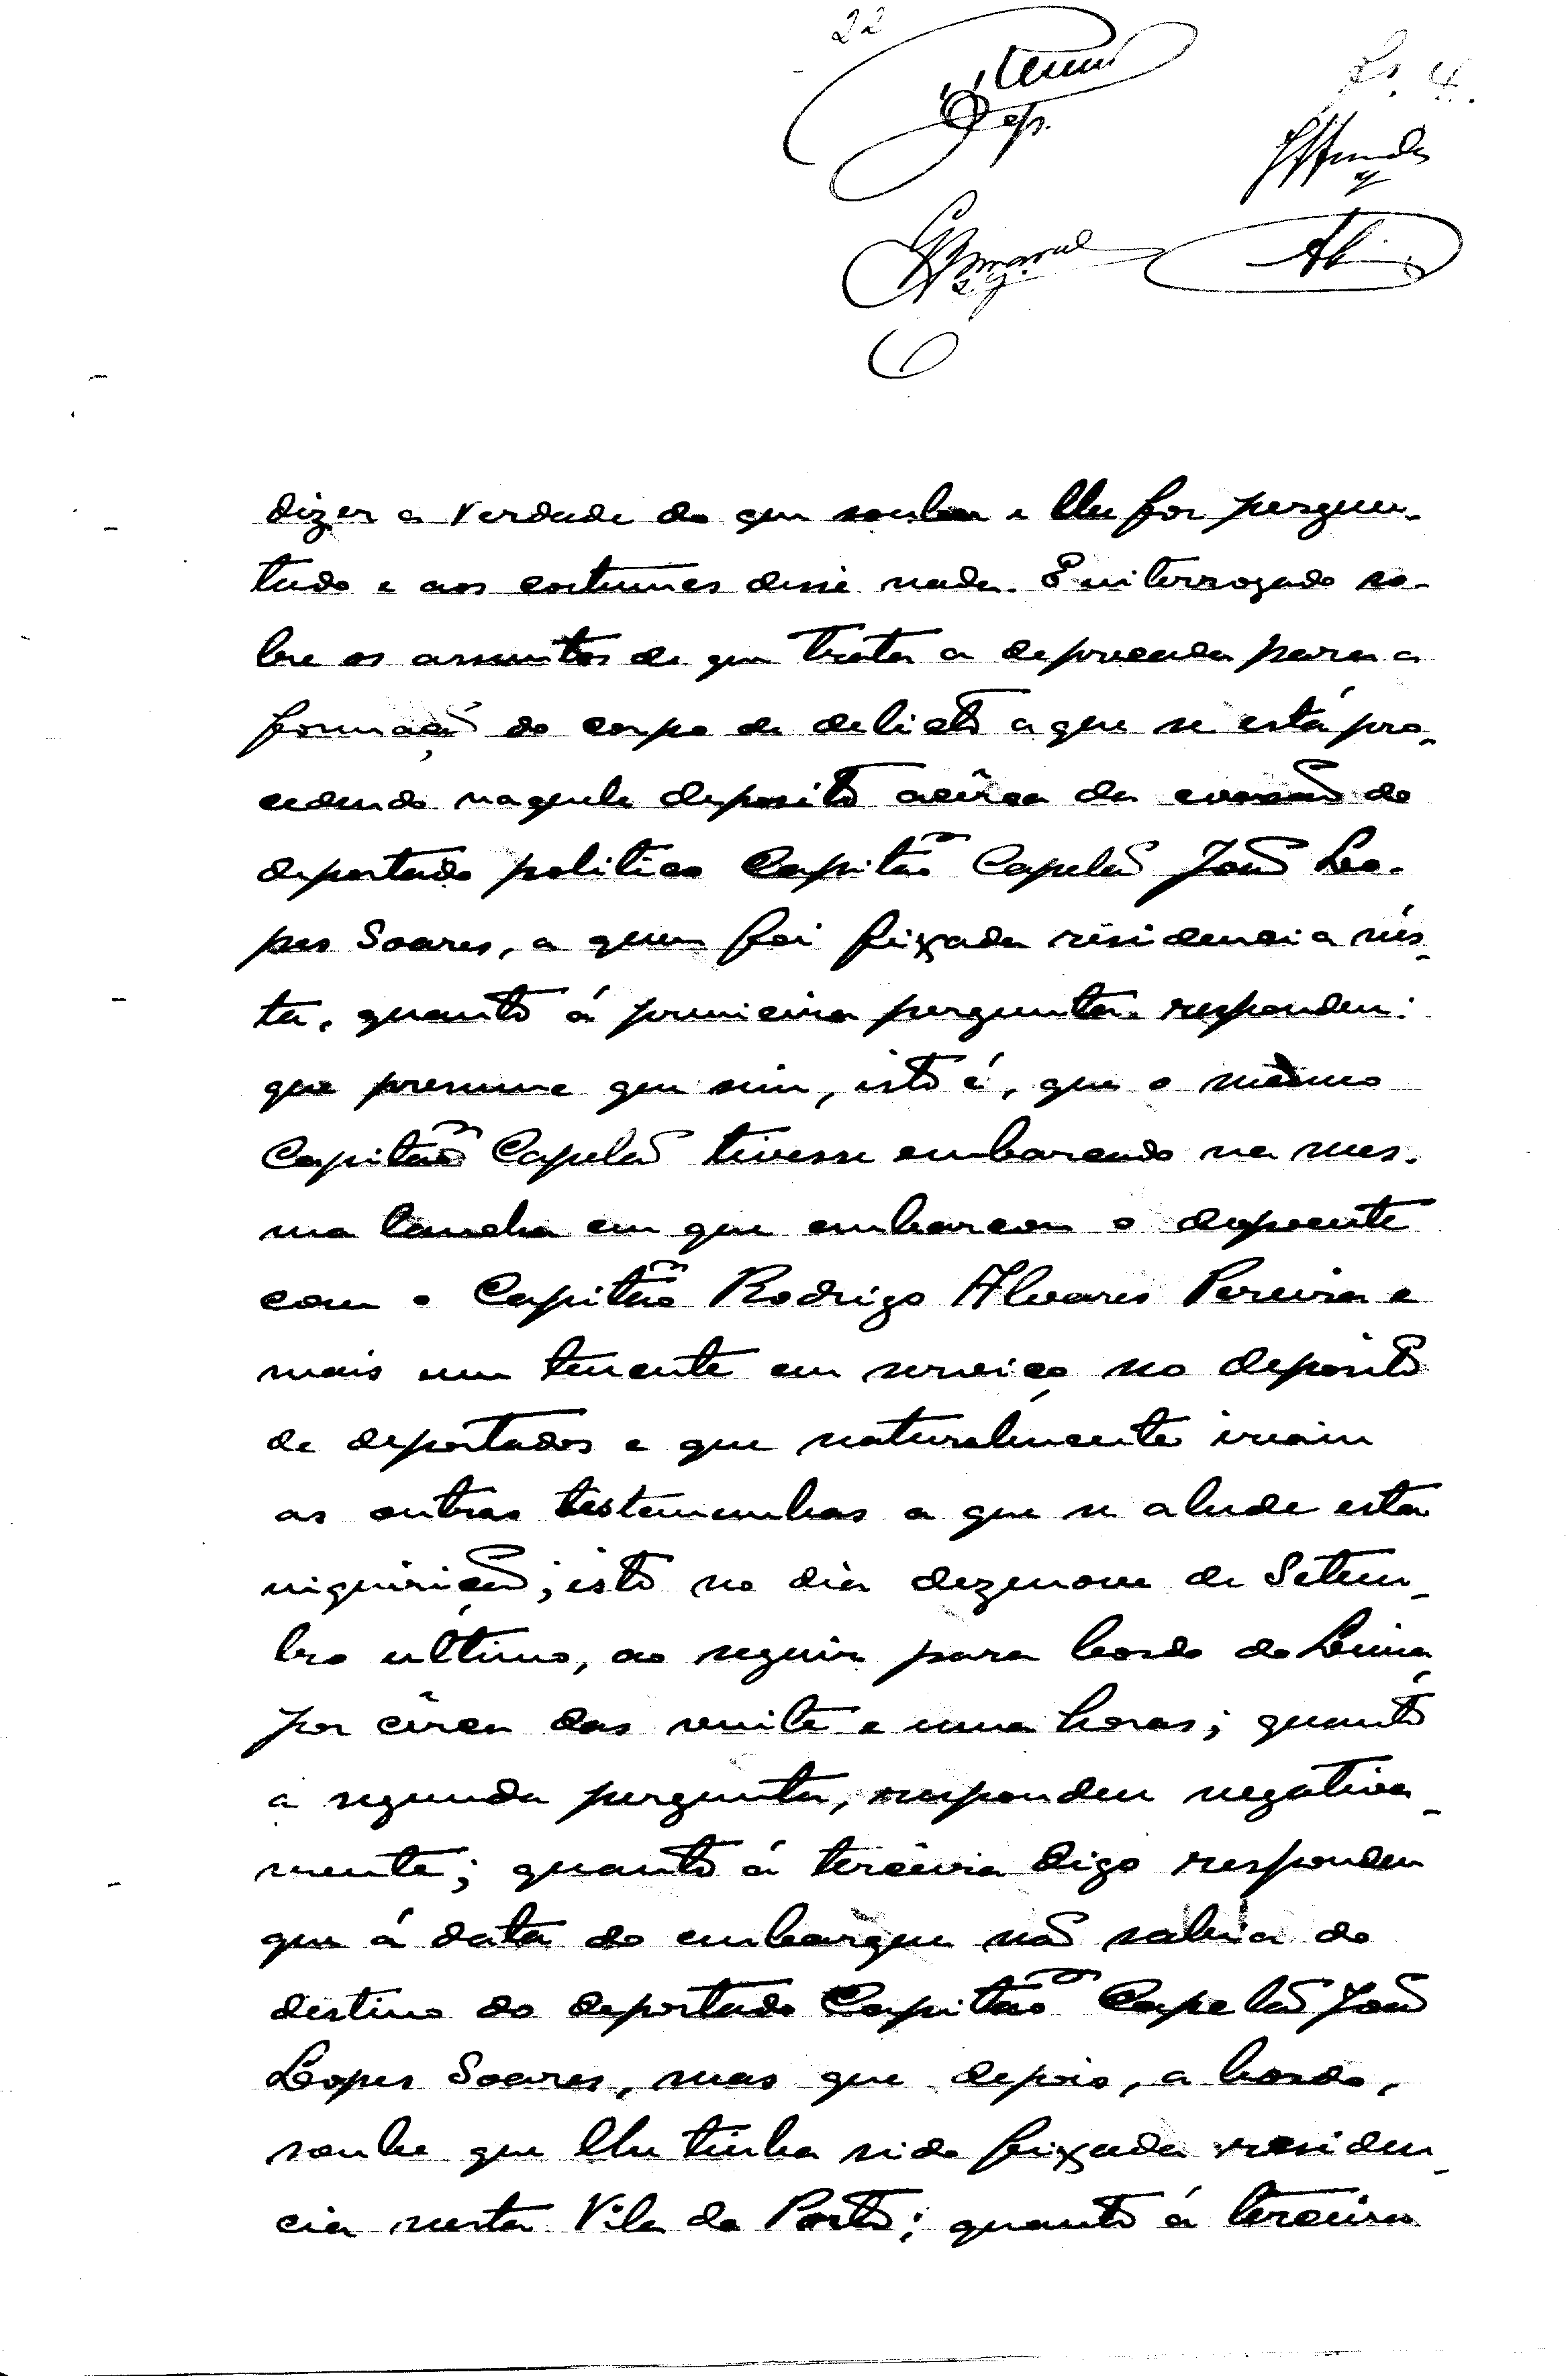 22
fs. 4.
dizer a verdade do que souber e lhe for pergun-
tado e aos costumes disse nada. E interrogado so-
bre os assuntos de que trata a deprecada para a
formação do corpo de delicto a que se está pro-
cedendo naquele deposito acêrca da evasão do
deportado politico Capitão Capelão João Lo-
pes Soares, a quem foi fixada residencia nes-
ta, quanto á primeira pergunta respondeu:
que presume que sim, isto é, que o mesmo
Capitão Capelão tivesse embarcado na mes-
ma lancha em que embarcou o depoente
com o Capitão Rodrigo Alvares Pereira e
mais um tenente em serviço no deposito
de deportados e que naturalmente iriam
as outras testemunhas a que se alude esta
inquirição; isto no dia dezenove de Setem-
bro último, ao seguir para bordo do Lima
por cêrca das vinte e uma horas; quanto
á segunda pergunta, respondeu negativa-
mente; quanto á terceira digo respondeu
que á data do embarque não sabia do
destino do deportado Capitão Capelão João
Lopes Soares, mas que depois, a bordo,
soube que lhe tinha sido fixada residen-
cia nesta Vila do Porto; quanto á terceira